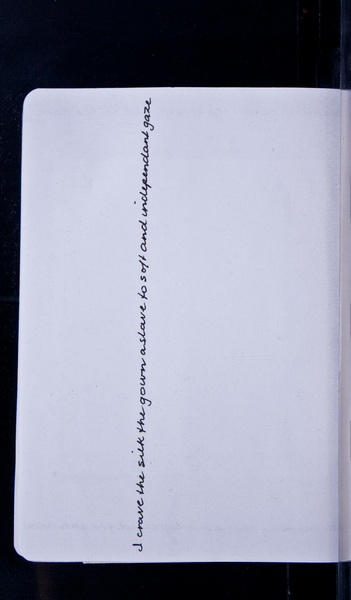 I crave the silk the gown a slave to soft and independant gaze